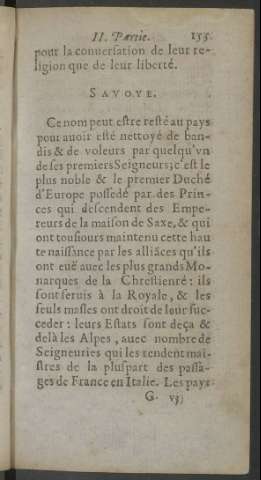 II. Partie. 155.
pour la conuersation de leur re-
ligion que de leur liberté.
SAVOYE.
Ce nom peut estre resté au pays
pour auoir esté nettoyé de ban-
dis & de voleurs par quelqu'vn
de ses premiers Seigneurs; c'est le
plus noble & le premier Duché
d'Europe possedé par des Prin-
ces qui descendent des Empe-
reurs de la maison de Saxe, & qui
ont tousiours maintenu cette hau
te naissãce par les alliãces qu'ils
ont euë auec les plus grands Mo-
narques de la Chrestienté: ils
sont seruis à la Royale, & les
seuls masles ont droit de leur suc-
ceder: leurs Estats sont deça &
delà les Alpes, auec nombre de
Seigneuries qui les rendent mai-
stres de la pluspart des passa-
ges de France en Italie. Les pays
G. vj